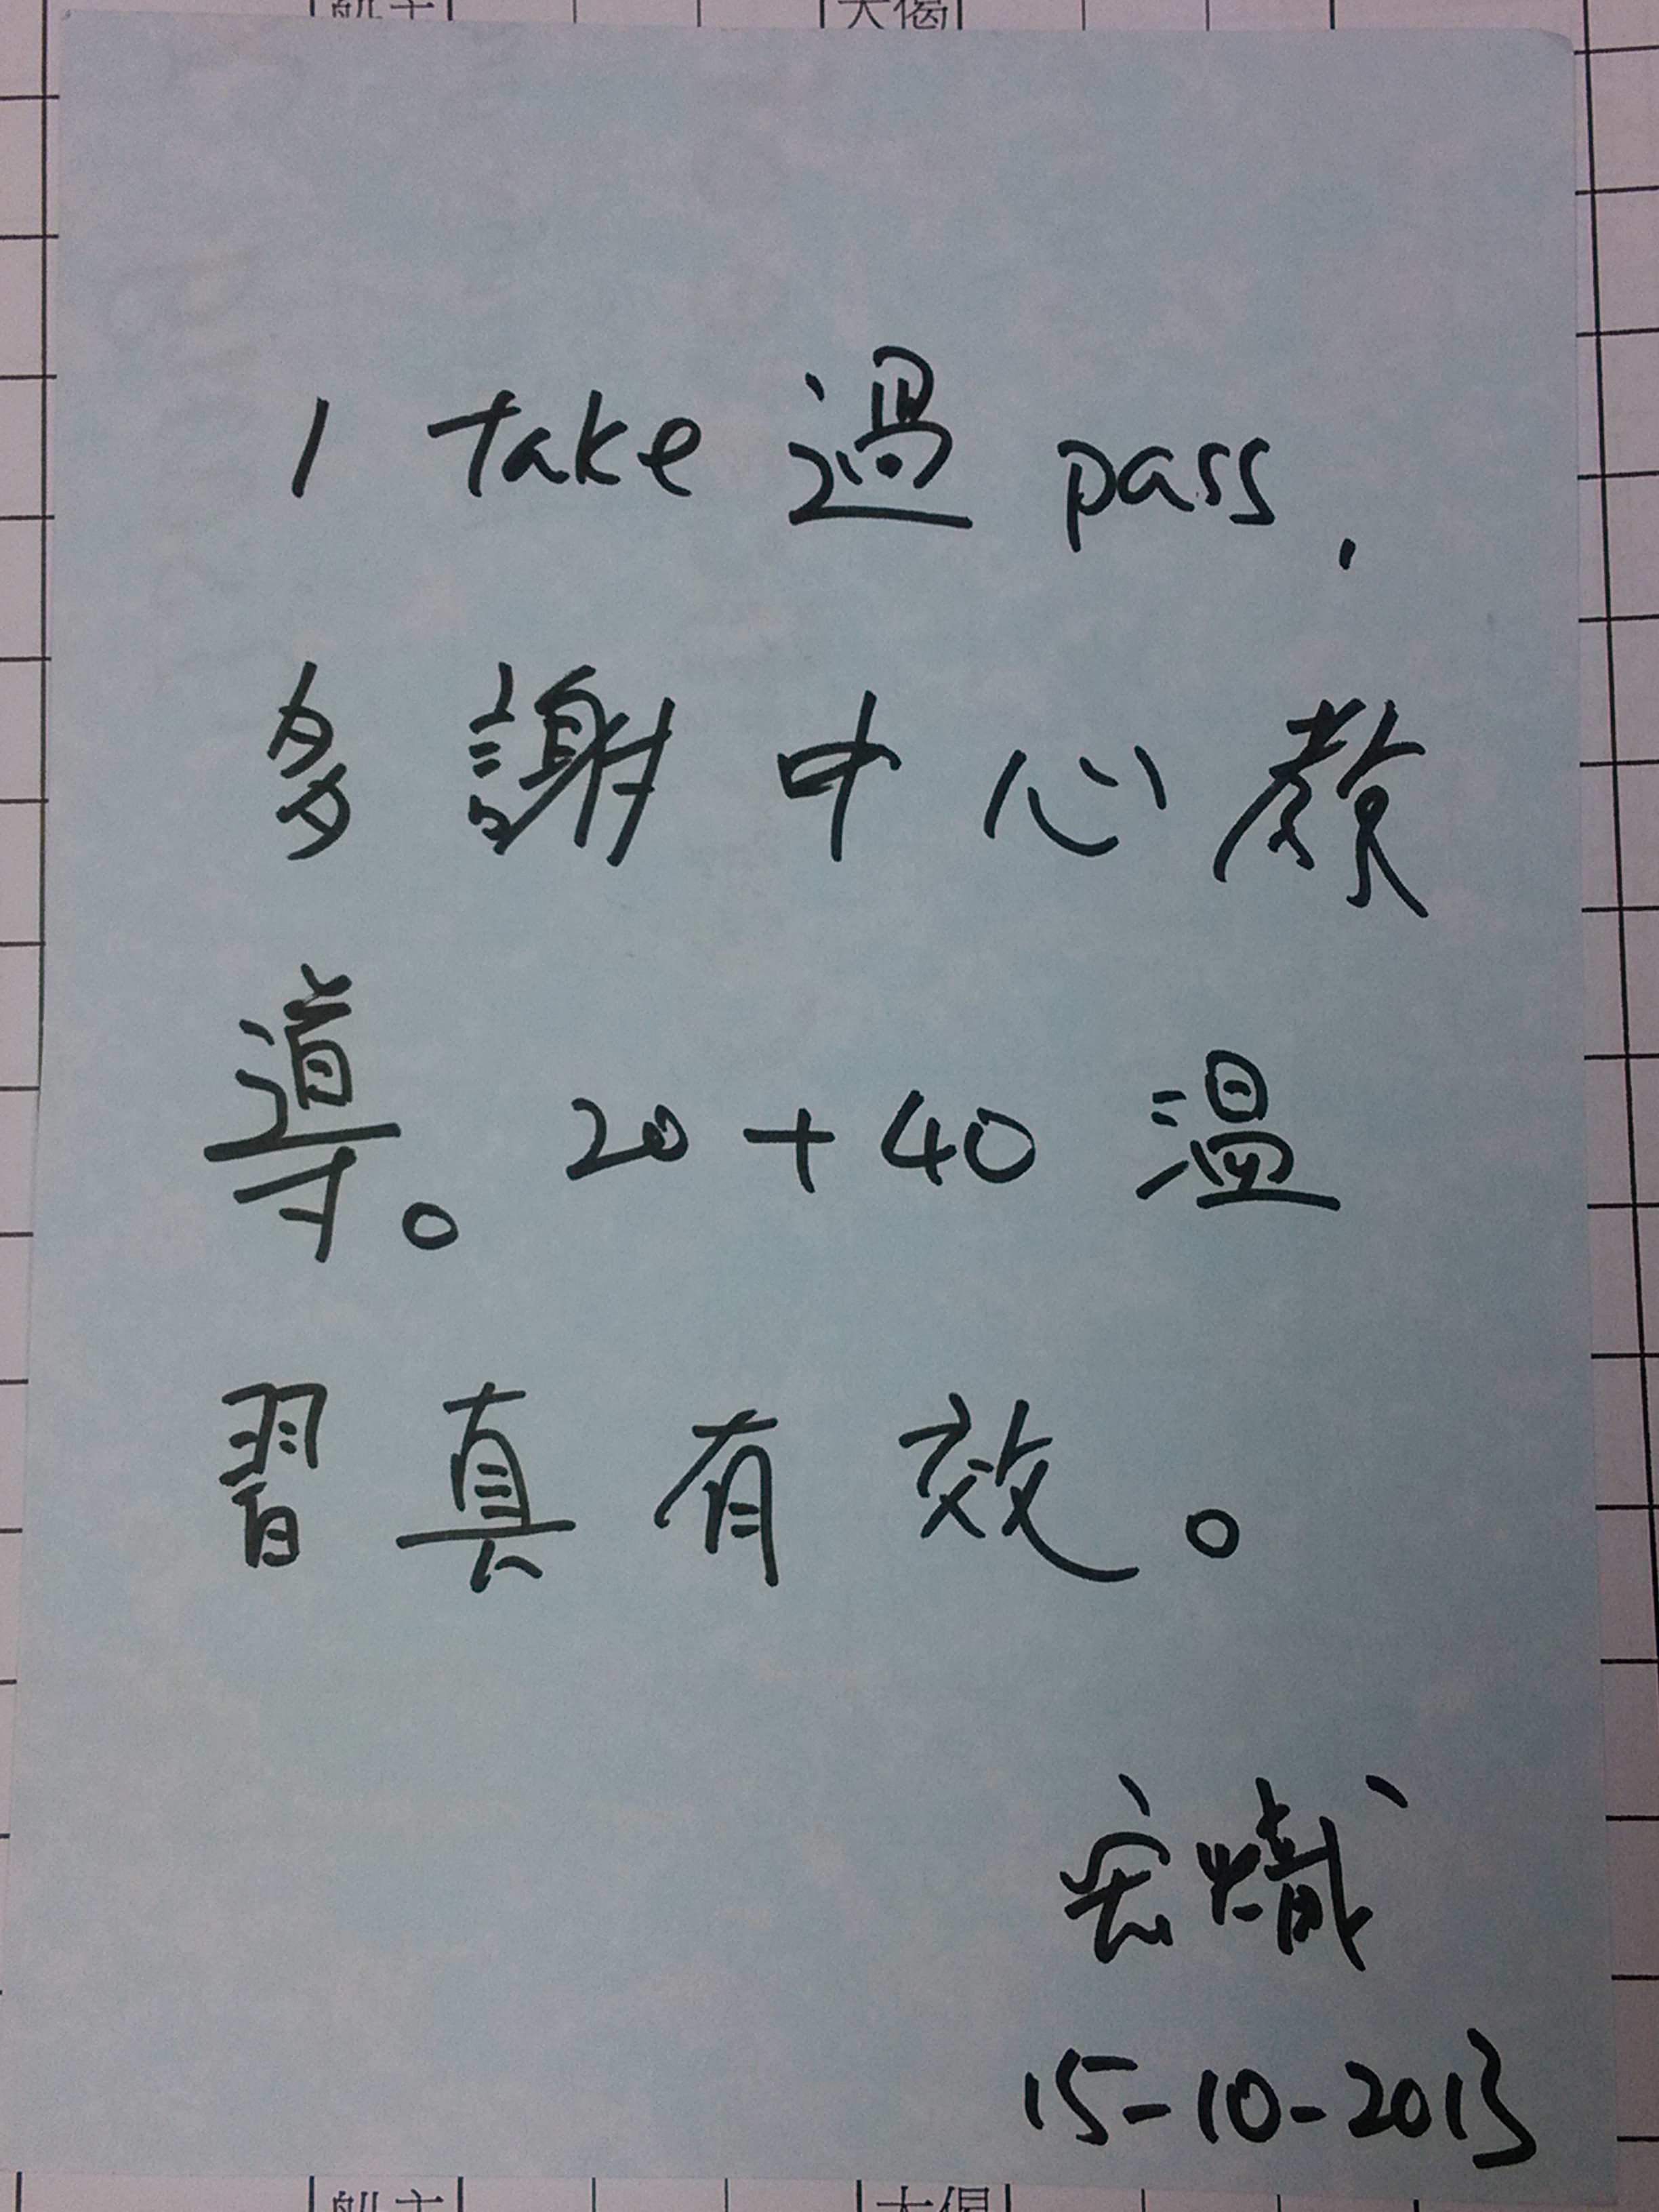 船主 大偈
1 take 過 pass,
多謝中心教
導。20+40溫
習真有效。
宏熾
15-10-2013
船主 大偈